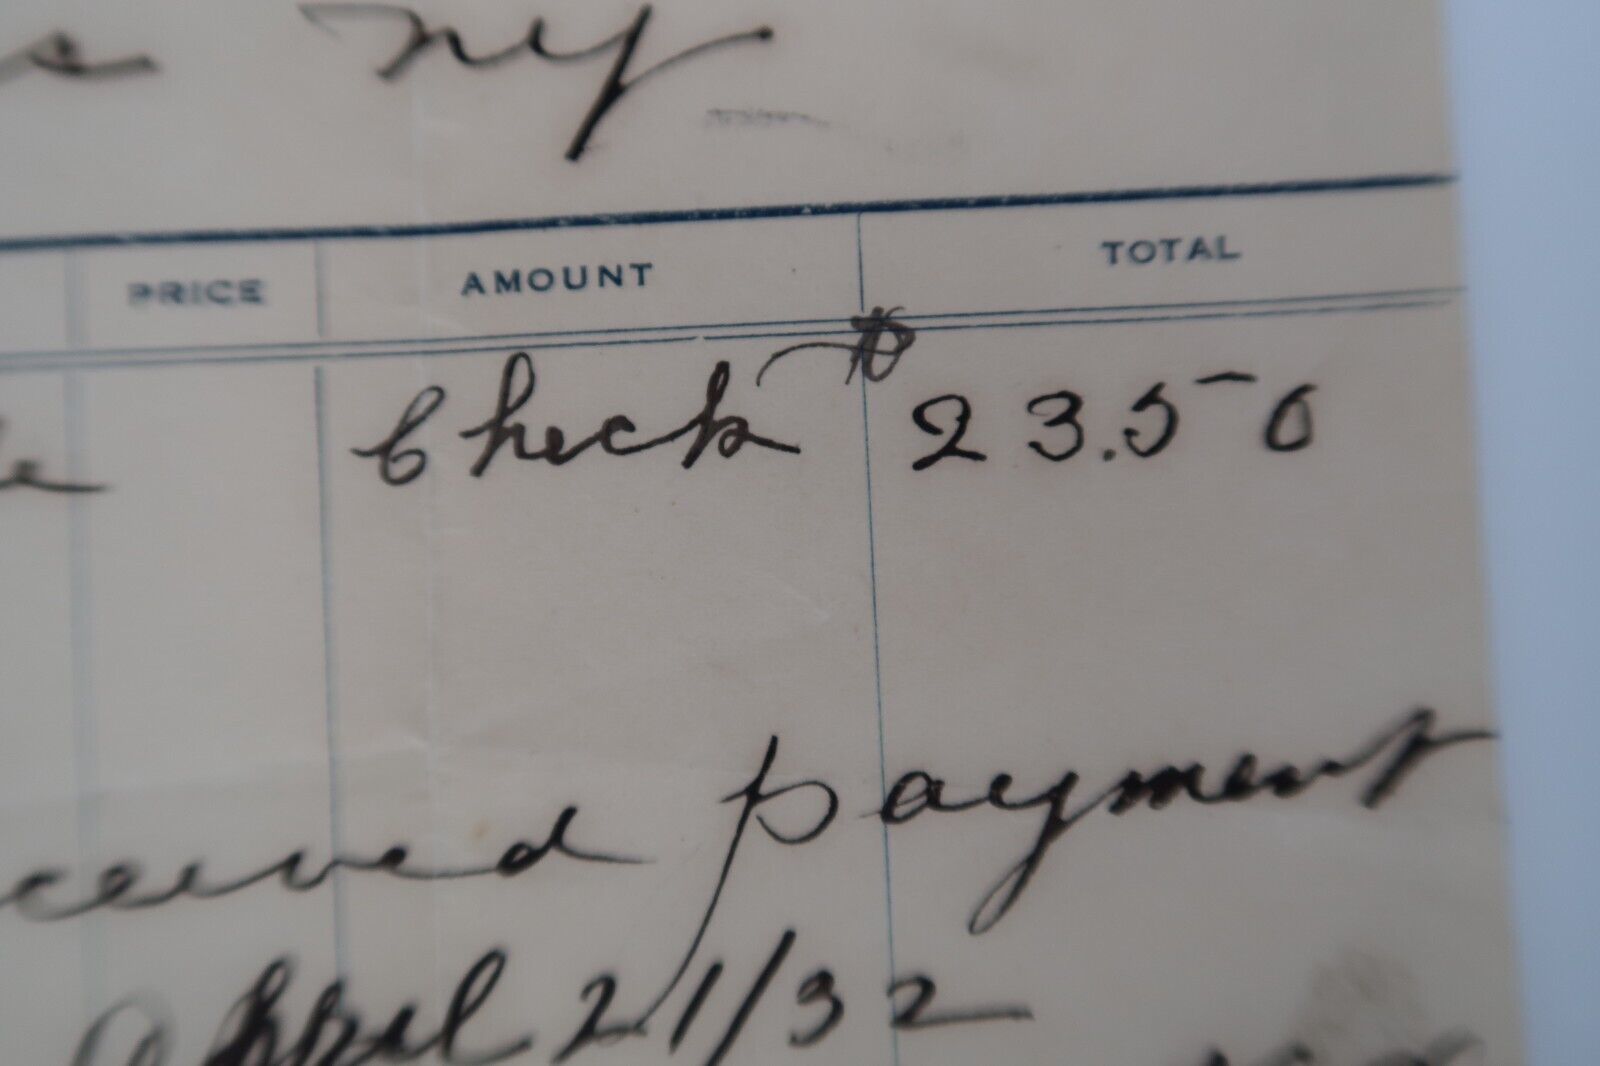 NY
PRICE AMOUNT TOTAL
Check $ 23.50
ceived payment
April 21/32